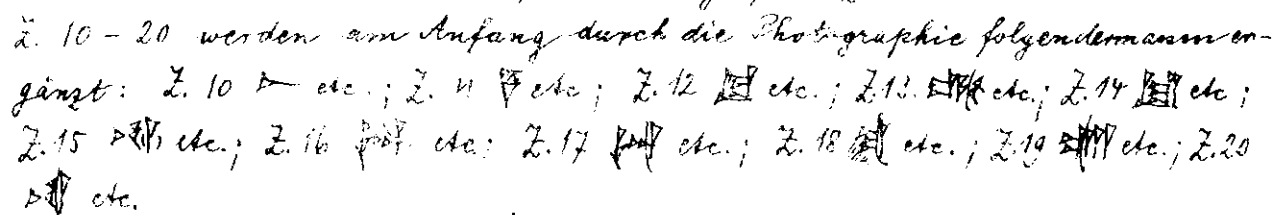 Z. 10 – 20 werden am Anfang durch die Photographie folgendermassen er-
gänzt: Z. 10 etc.; Z. 11 etc; Z. 12 etc.; Z. 13. etc.; Z. 14 etc;
Z. 15 etc.; Z. 16 etc; Z. 17 etc.; Z. 18 etc.; Z. 19 etc.; Z. 20
etc.